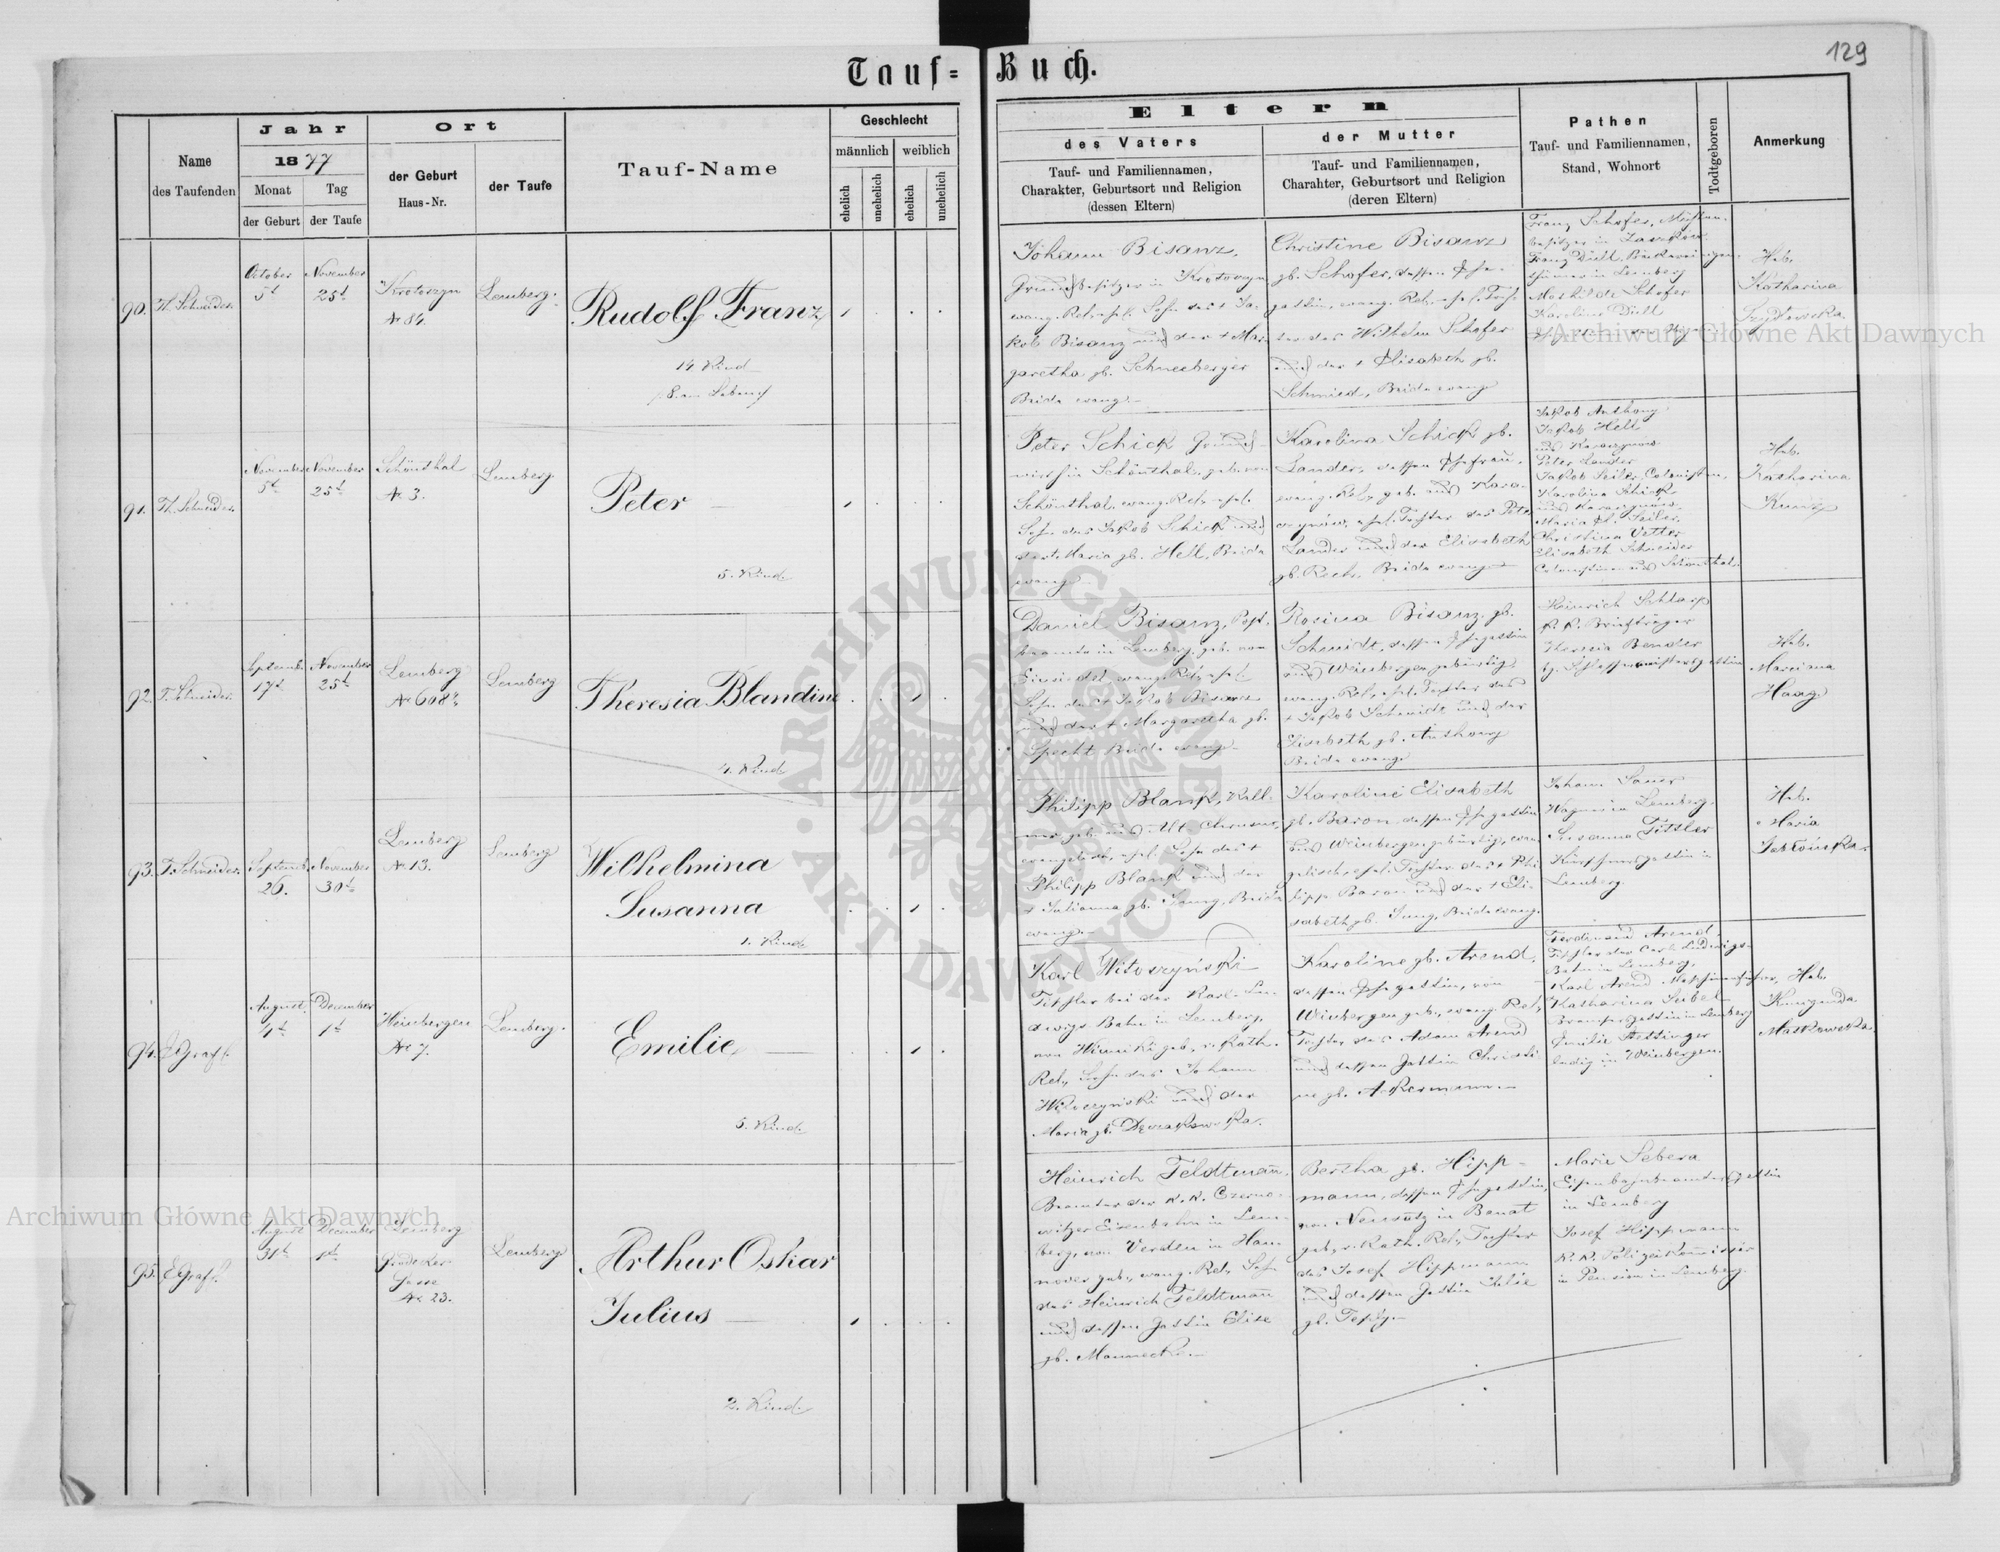 Tauf=Buch.
129
Name
des Taufenden
Jahr
1877
Monat
der Geburt
Tag
der Taufe
Ort
der Geburt
Haus-Nr.
der Taufe
Tauf-Name
Geschlecht
männlich
weiblich
ehelich
unehelich
ehelich
unehelich
Eltern
des Vaters
Tauf- und Familiennamen,
Charakter, Geburtsort und Religion
(dessen Eltern)
der Mutter
Tauf- und Familiennamen,
Charahter, Geburtsort und Religion
(deren Eltern)
Pathen
Tauf- und Familiennamen,
Stand, Wohnort
Todtgeboren
Anmerkung
90.
Th. Schneider.
October
5t
November
25t
Krotoszyn
№ 84.
Lemberg.
Rudolf Franz
14 Kind
8. am Leben
Johann Bisanz,
Grundbesitzer in Krotoszyn
kob Bisanz und der + Mar-
garetha gb. Schneeberger
Beide evang.
Christine Bisanz
gb. Schofer, dessen Ehe-
ter des Wilhelm Schofer
und der + Elisabeth gb.
Schmied, Beide evang
Franz Schofer,
Mathilde Schofer
Karoline Dull
Heb.
Katharina
Szydłowska
91.
Th. Schneider.
November
5t
November
25t
Schönthal
№ 3.
Lemberg
Peter
5. Kind
Peter Schick Grund-
wirth in Schönthal, geb. von
Schönthal, evang. Rel. ehel.
Sohn des Jakob Schick und
der + Maria gb. Hell, Beide
evang
Karolina Schick gb.
Lander, dessen Ehefrau,
evang. Rel., geb. aus Kara-
czynów, ehel. Tochter des Peter
Lander und der Elisabeth
gb. Rech, Beide evang
Jakob Anthony
Jakob Hell
Peter Lander
Jakob Seiler, Colonisten,
Karolina Schick
Christina Vetter
Elisabeth Schneider
Heb.
Katharina
Kunz
92.
T. Schneider.
Septemb.
17t
November
25t
Lemberg
№ 608
Lemberg
Theresia Blandine
4. Kind
Daniel Bisanz, Post-
beamte in Lemberg, geb. von
Sohn des + Jakob Bisanz
und der + Margaretha gb.
Specht Beide evang
Rosina Bisanz, gb.
Schmidt, dessen Ehegattin
aus Weinbergen gebürtig,
evang. Rel., ehel. Tochter des
+ Jakob Schmidt und der
Elisabeth gb. Anthony
Beide evang
Heinrich Schlarp
K. K. Briefträger
Theresia Bender
Heb.
Marciana
Haag
93.
T. Schneider.
Septemb.
26.
November
30t
Lemberg
№ 13.
Lemberg
Wilhelmina
Susanna
1. Kind
Philipp Blank, Kell-
evangelisch, ehel. Sohn des +
Philipp Blank und der
+ Julianna gb. Jung, Beide
evang.
Karoline Elisabeth
gb. Baron, dessen Ehegattin
aus Weinbergen gebürtig, evan
gelisch, ehel. Tochter des + Phi-
lipp Baron und der + Eli-
sabeth gb. Jung, Beide evang.
Johann Sauer
Wagner in Lemberg,
Susanna Tittler
Kürschnersgattin in
Lemberg.
Heb.
Maria
Jabłońska
94.
E. Graf
August
4t
December
1t
Weinbergen
№ 7.
Lemberg.
Emilie
5. Kind.
Karl Witoszyński
Tischler bei der Karl-Lu
dwigs Bahn in Lemberg,
von Winniki geb., r. Kath.
Rel., Sohn des Johann
Witoszyński und der
Maria gb.
Karoline gb. Arend,
dessen Ehegattin, von
Weinbergen geb., evang. Rel.,
Tochter des Adam Arend
und dessen Gattin Christi
ne gb. Akermann.
Ferdinand Arend
Tischler der Carl Ludwigs-
Bahn in Lemberg,
Karl Arend Maschinenführer,
Katharina Subel
Emilie Hettinger
ledig in Weinbergen.
Heb.
Kunigunda
Maćkowska
95.
E. Graf
August
31t
December
1t
Lemberg
Grodeker
Gasse
№ 23.
Lemberg
Arthur Oskar
Julius
2. Kind.
Heinrich Feldtmann,
Beamter der K. K. Czerno-
witzer Eisenbahn in Lem-
berg, von Verden in Han
nover geb., evang. Rel., Sohn
des Heinrich Feldtmann
und dessen Gattin Elise
gb. Mannecke.
Bertha gb. Hipp-
mann, dessen Ehegattin,
von Neusatz in Banat
geb., r. Kath. Rel., Tochter
des Josef Hippmann
und dessen Gattin Julie
Marie Sebera
Eisenbahnbeamtensgattin
in Lemberg
Josef Hippmann
K. K. Polizeikommissär
in Pension in Lemberg.
Archiwum Główne Akt Dawnych
Archiwum Główne Akt Dawnych
ARCHIWUM GŁÓWNE
AKT DAWNYCH